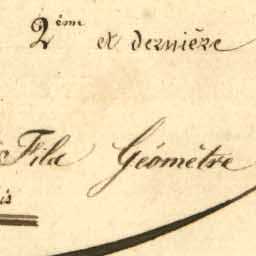 2ème et dernière
Fils Géomètre
is